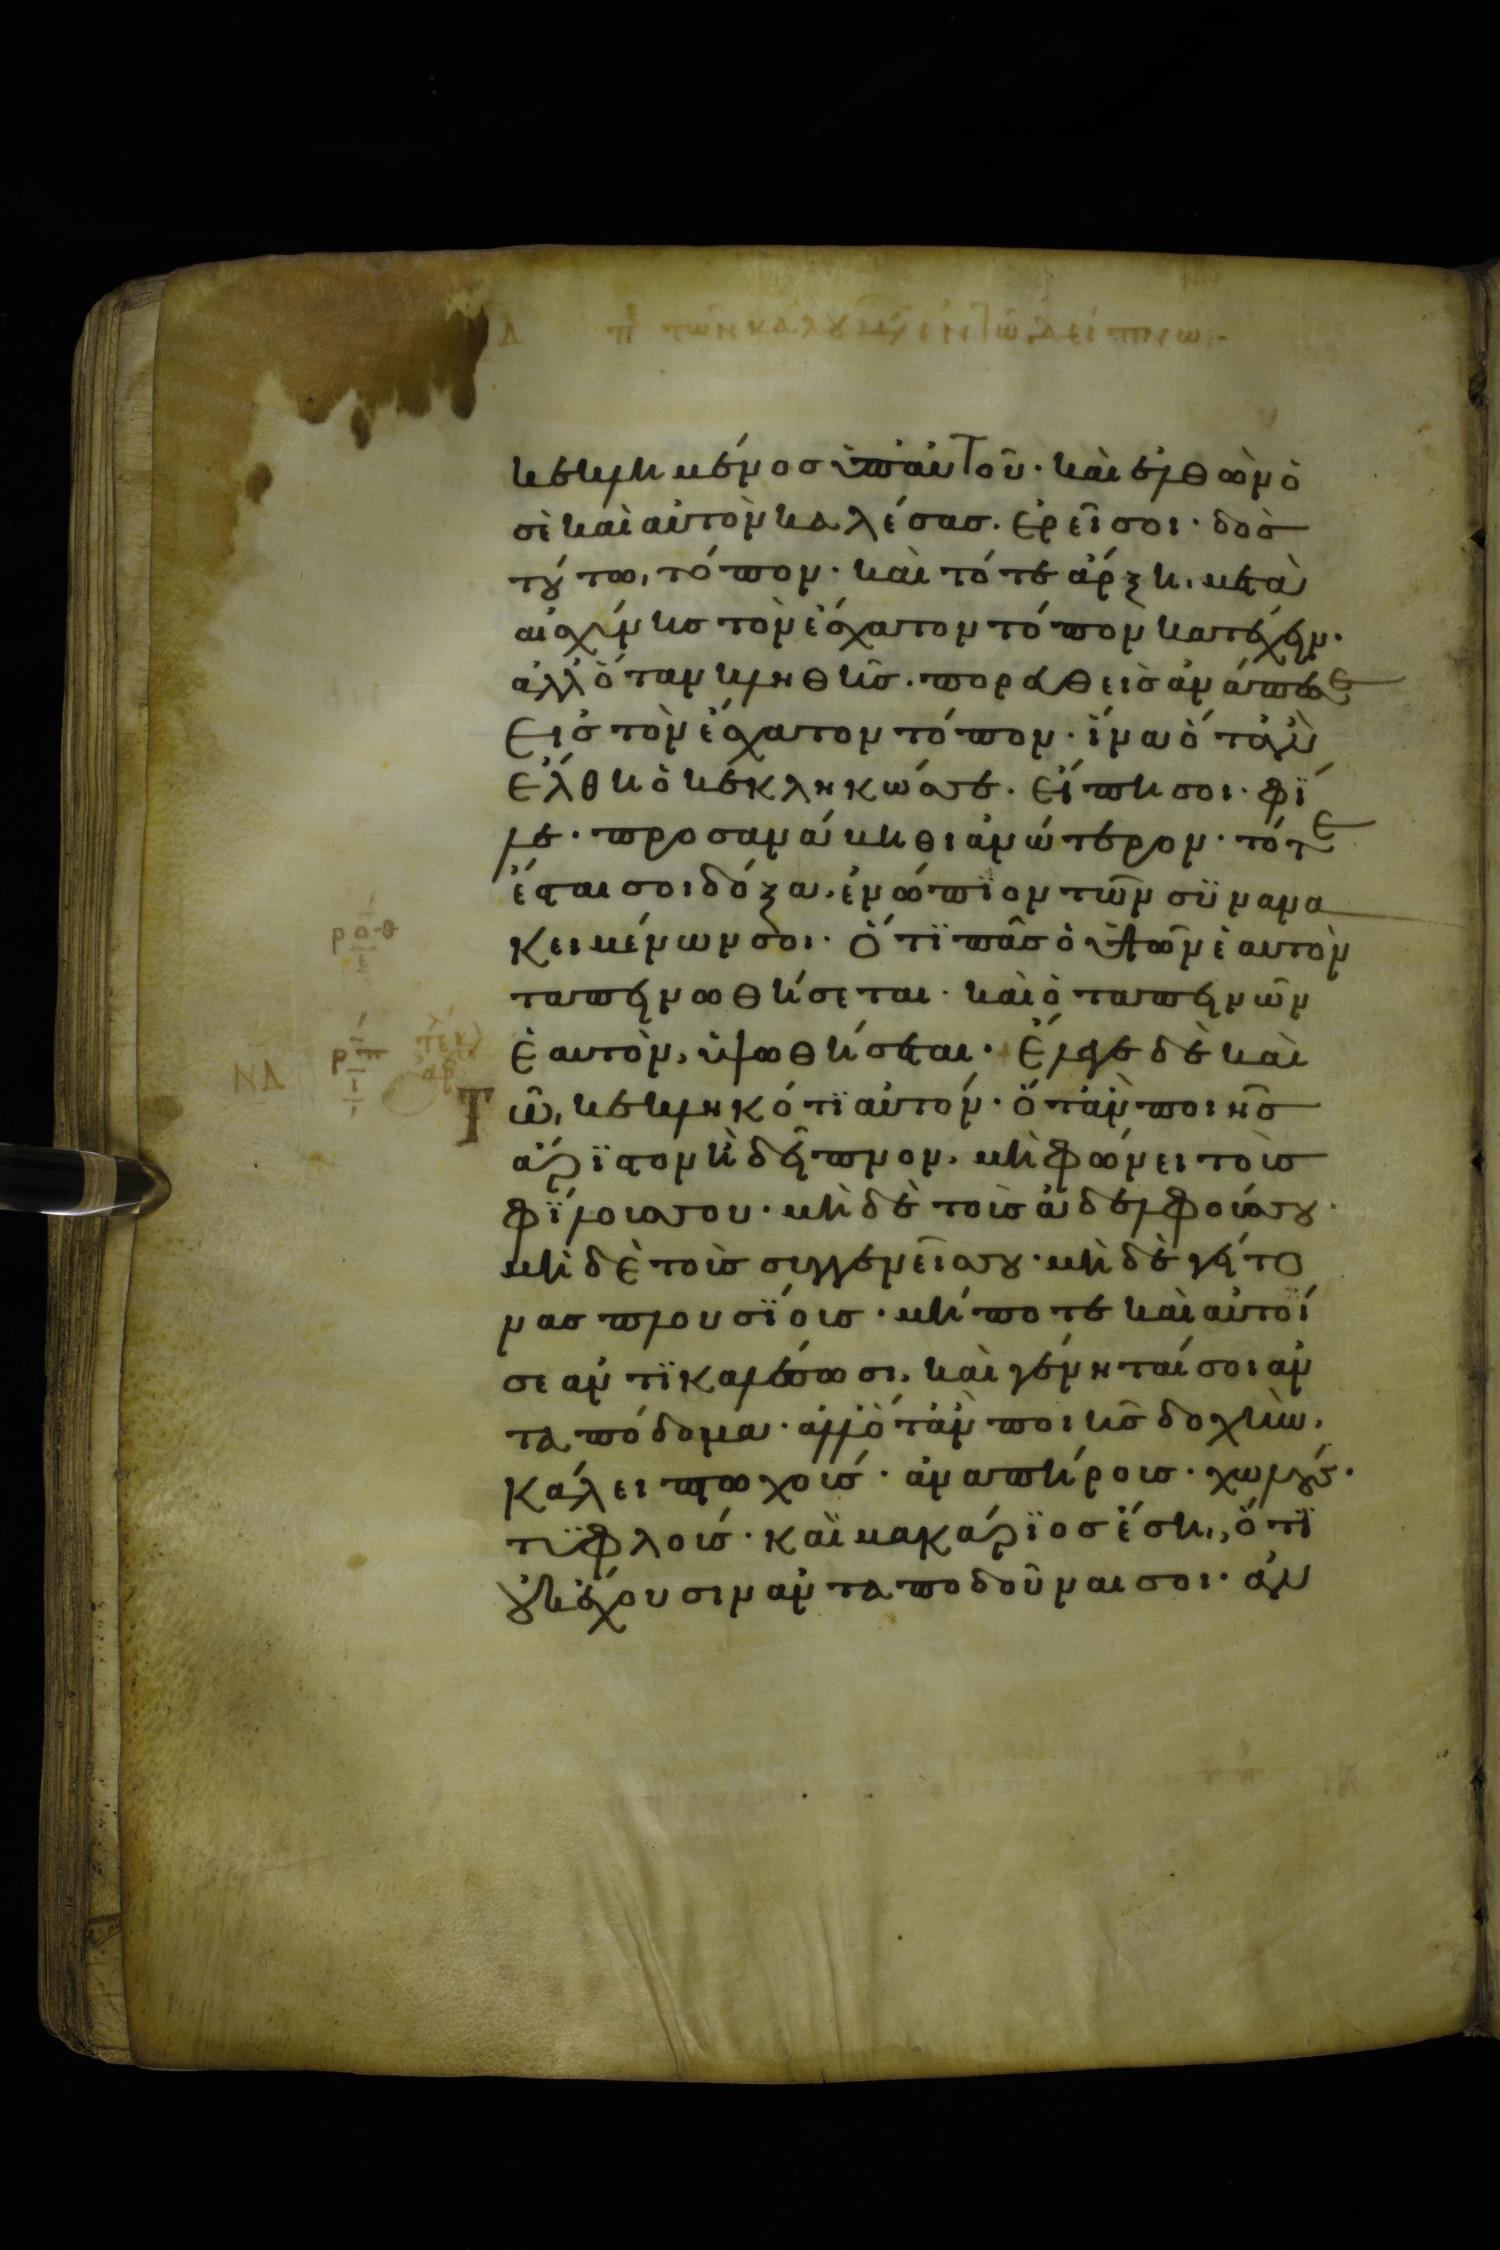 κεκλημένος ὑπ αὐτοῦ· καὶ ἐλθὼν ὁ
σὲ καὶ αὐτὸν καλέσας. ἐρεῖ σοι· δὸσ
τούτω, τόπον· καὶ τότε ἄρξη, μετὰ
αἰσχύνησ τὸν ἔσχατον τόπον κατέχειν.
ἀλλ ὅταν κληθῆσ. πορευθεὶσ ἀνάπεσε
εἰσ τὸν ἔσχατον τόπον· ἵνα ὅταν
ἔλθη ὁ κεκληκώσ σε. εἴπη σοι· φί
λε· προσανάβηθι ἀνώτερον· τότε
ἔσται σοι δόξα, ἐνώπϊον τῶν συνανα
κειμένων σοι· ὅτϊ πᾶσ ὁ ὑψῶν ἑαυτὸν
ταπεινωθήσεται· καὶ ὁ ταπεινῶν
ἑαυτὸν, ὑψωθήσεται· ἔλεγε δὲ καὶ
Τῶ, κεκληκότϊ αὐτόν· ὅταν ποιῆσ
ἄρϊστον ἢ δεῖπνον, μὴ φώνει τοὺσ
φίλουσ σου· μὴ δὲ τοὺσ ἀδελφούσ σου·
μὴ δὲ τοὺσ συγγενεῖσ σου· μὴ δὲ γείτο
νας πλουσίουσ· μήποτε καὶ αὐτοί
σε ἀντϊκαλέσωσι, καὶ γένηταί σοι ἀν
ταπόδομα· ἀλλ ὅταν ποιῆσ δοχὴν,
κάλει πτωχούσ· ἀναπήρους· χωλούσ·
τυφλούσ· καὶ μακάρϊοσ ἔση, ὅτϊ
οὐκ ἔχουσιν ἀνταποδοῦναι σοι· ἀν